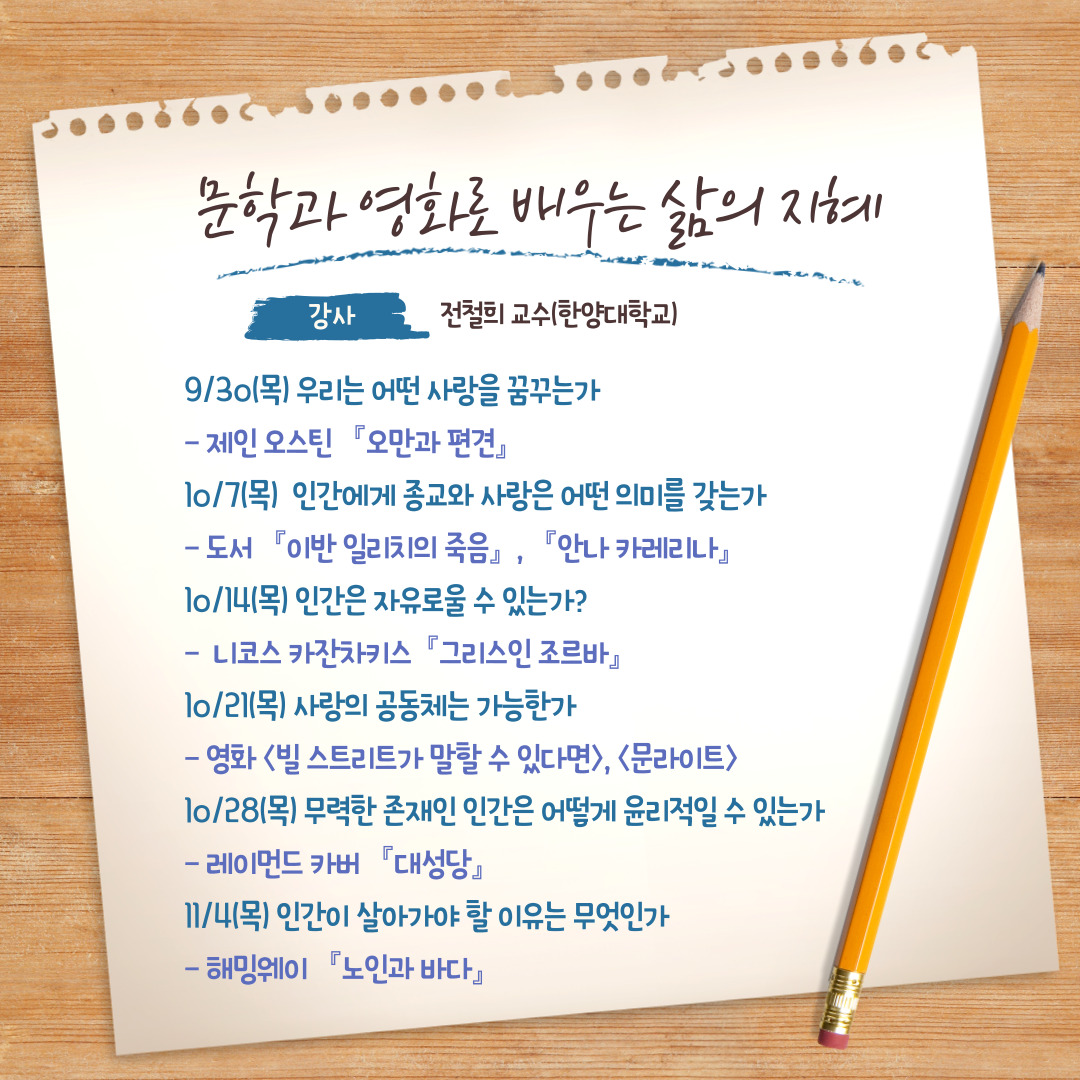 문학과 영화로 배우는 삶의 지혜
강사 전철희 교수(한양대학교)
9/30(목) 우리는 어떤 사랑을 꿈꾸는가
- 제인 오스틴 『오만과 편견』
10/7(목) 인간에게 종교와 사랑은 어떤 의미를 갖는가
- 도서 『이반 일리치의 죽음』, 『안나 카레리나』
10/14(목) 인간은 자유로울 수 있는가?
- 니코스 카잔차키스『그리스인 조르바』
10/21(목) 사랑의 공동체는 가능한가
- 영화 <빌 스트리트가 말할 수 있다면>, <문라이트>
10/28(목) 무력한 존재인 인간은 어떻게 윤리적일 수 있는가
- 레이먼드 카버 『대성당』
11/4(목) 인간이 살아가야 할 이유는 무엇인가
- 헤밍웨이 『노인과 바다』